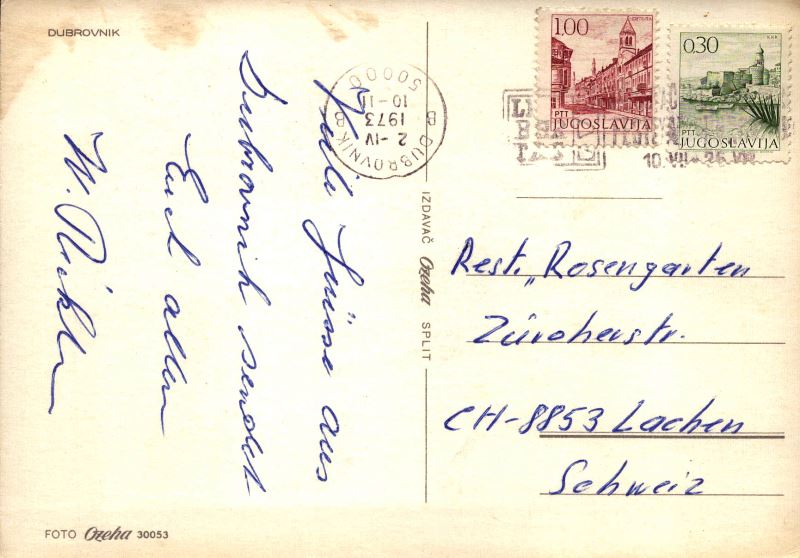 DUBROVNIK
Viele Grüsse aus
Dubrovnik sendet
Euch allen
W.
DUBROVNIK B
50000
2-IV
1973
10-11
B
1.00
PTT
JUGOSLAVIJA
0.30
PTT
JUGOSLAVIJA
10.VII-25.VIII
Rest. „Rosengarten
Zürcherstr.
CH-8853 Lachen
Schweiz
IZDAVAČ Ozeha SPLIT
FOTO Ozeha 30053